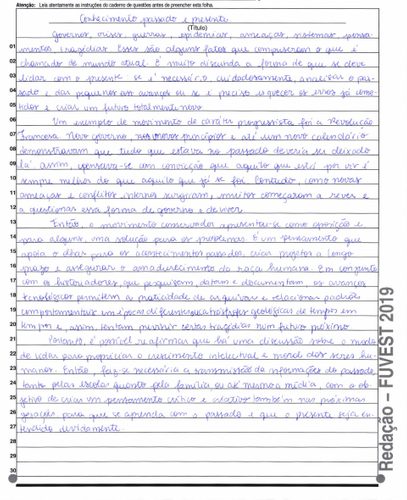 Atenção: Leia atentamente as instruções do caderno de questões antes de preencher esta folha.
Conhecimento passado e presente
(Título)
01 Governos, vírus, guerras, epidemias, ameaças, sistemas, pensa-
02 mentos, tragédias. Esses são alguns fatos que compuseram o que é
03 chamado de mundo atual. É muito discutida a forma de que se deve
04 lidar com o presente: se é necessário, cuidadosamente, analisar o pas-
05 sado e dar pequenos avanços ou se é preciso esquecer os erros já come-
06 tidos e criar um futuro totalmente novo.
07 Um exemplo de movimento de caráter progressista foi a Revolução
08 Francesa. Novo governo, novos princípios e até um novo calendário
09 demonstravam que tudo que estava no passado deveria ser deixado
10 lá assim, pensava-se com convicção que aquilo que está por vir é
11 sempre melhor do que aquilo que já se foi. Contudo, como novas
12 ameaças e conflitos internos surgiram, muitos começaram a rever e
a questionar essa forma de governo e de viver.
13 Então, o movimento conservador apresentou-se como oposição e
14 para alguns, uma solução para os problemas. É um pensamento que
15 apoia o olhar para os acontecimentos passados, criar projetos a longo
16 prazo e assegurar o amadurecimento da raça humana. Em conjunto
17 com os historiadores, que pesquisam, datam e documentam, os avanços
18 tecnológicos permitem a praticidade de arquivar e relacionar padrões
19 comportamentais em épocas diferentes ou catástrofes geológicas de tempos em
20 tempos e, assim, tentam prevenir certas tragédias num futuro próximo.
21 Portanto, é possível reafirmar que há uma discussão sobre o modo
22 de vidas para propiciar o crescimento intelectual e moral dos seres hu-
23 manos. Então, faz-se necessária a transmissão de informações do passado,
24 tanto pelas escolas quanto pela família ou até mesmo a mídia, com o ob-
25 jetivo de criar um pensamento crítico e criativo também nas próximas
26 gerações para que se aprenda com o passado e que o presente seja en-
27 tendido devidamente.
28
29
30
Redação – FUVEST 2019